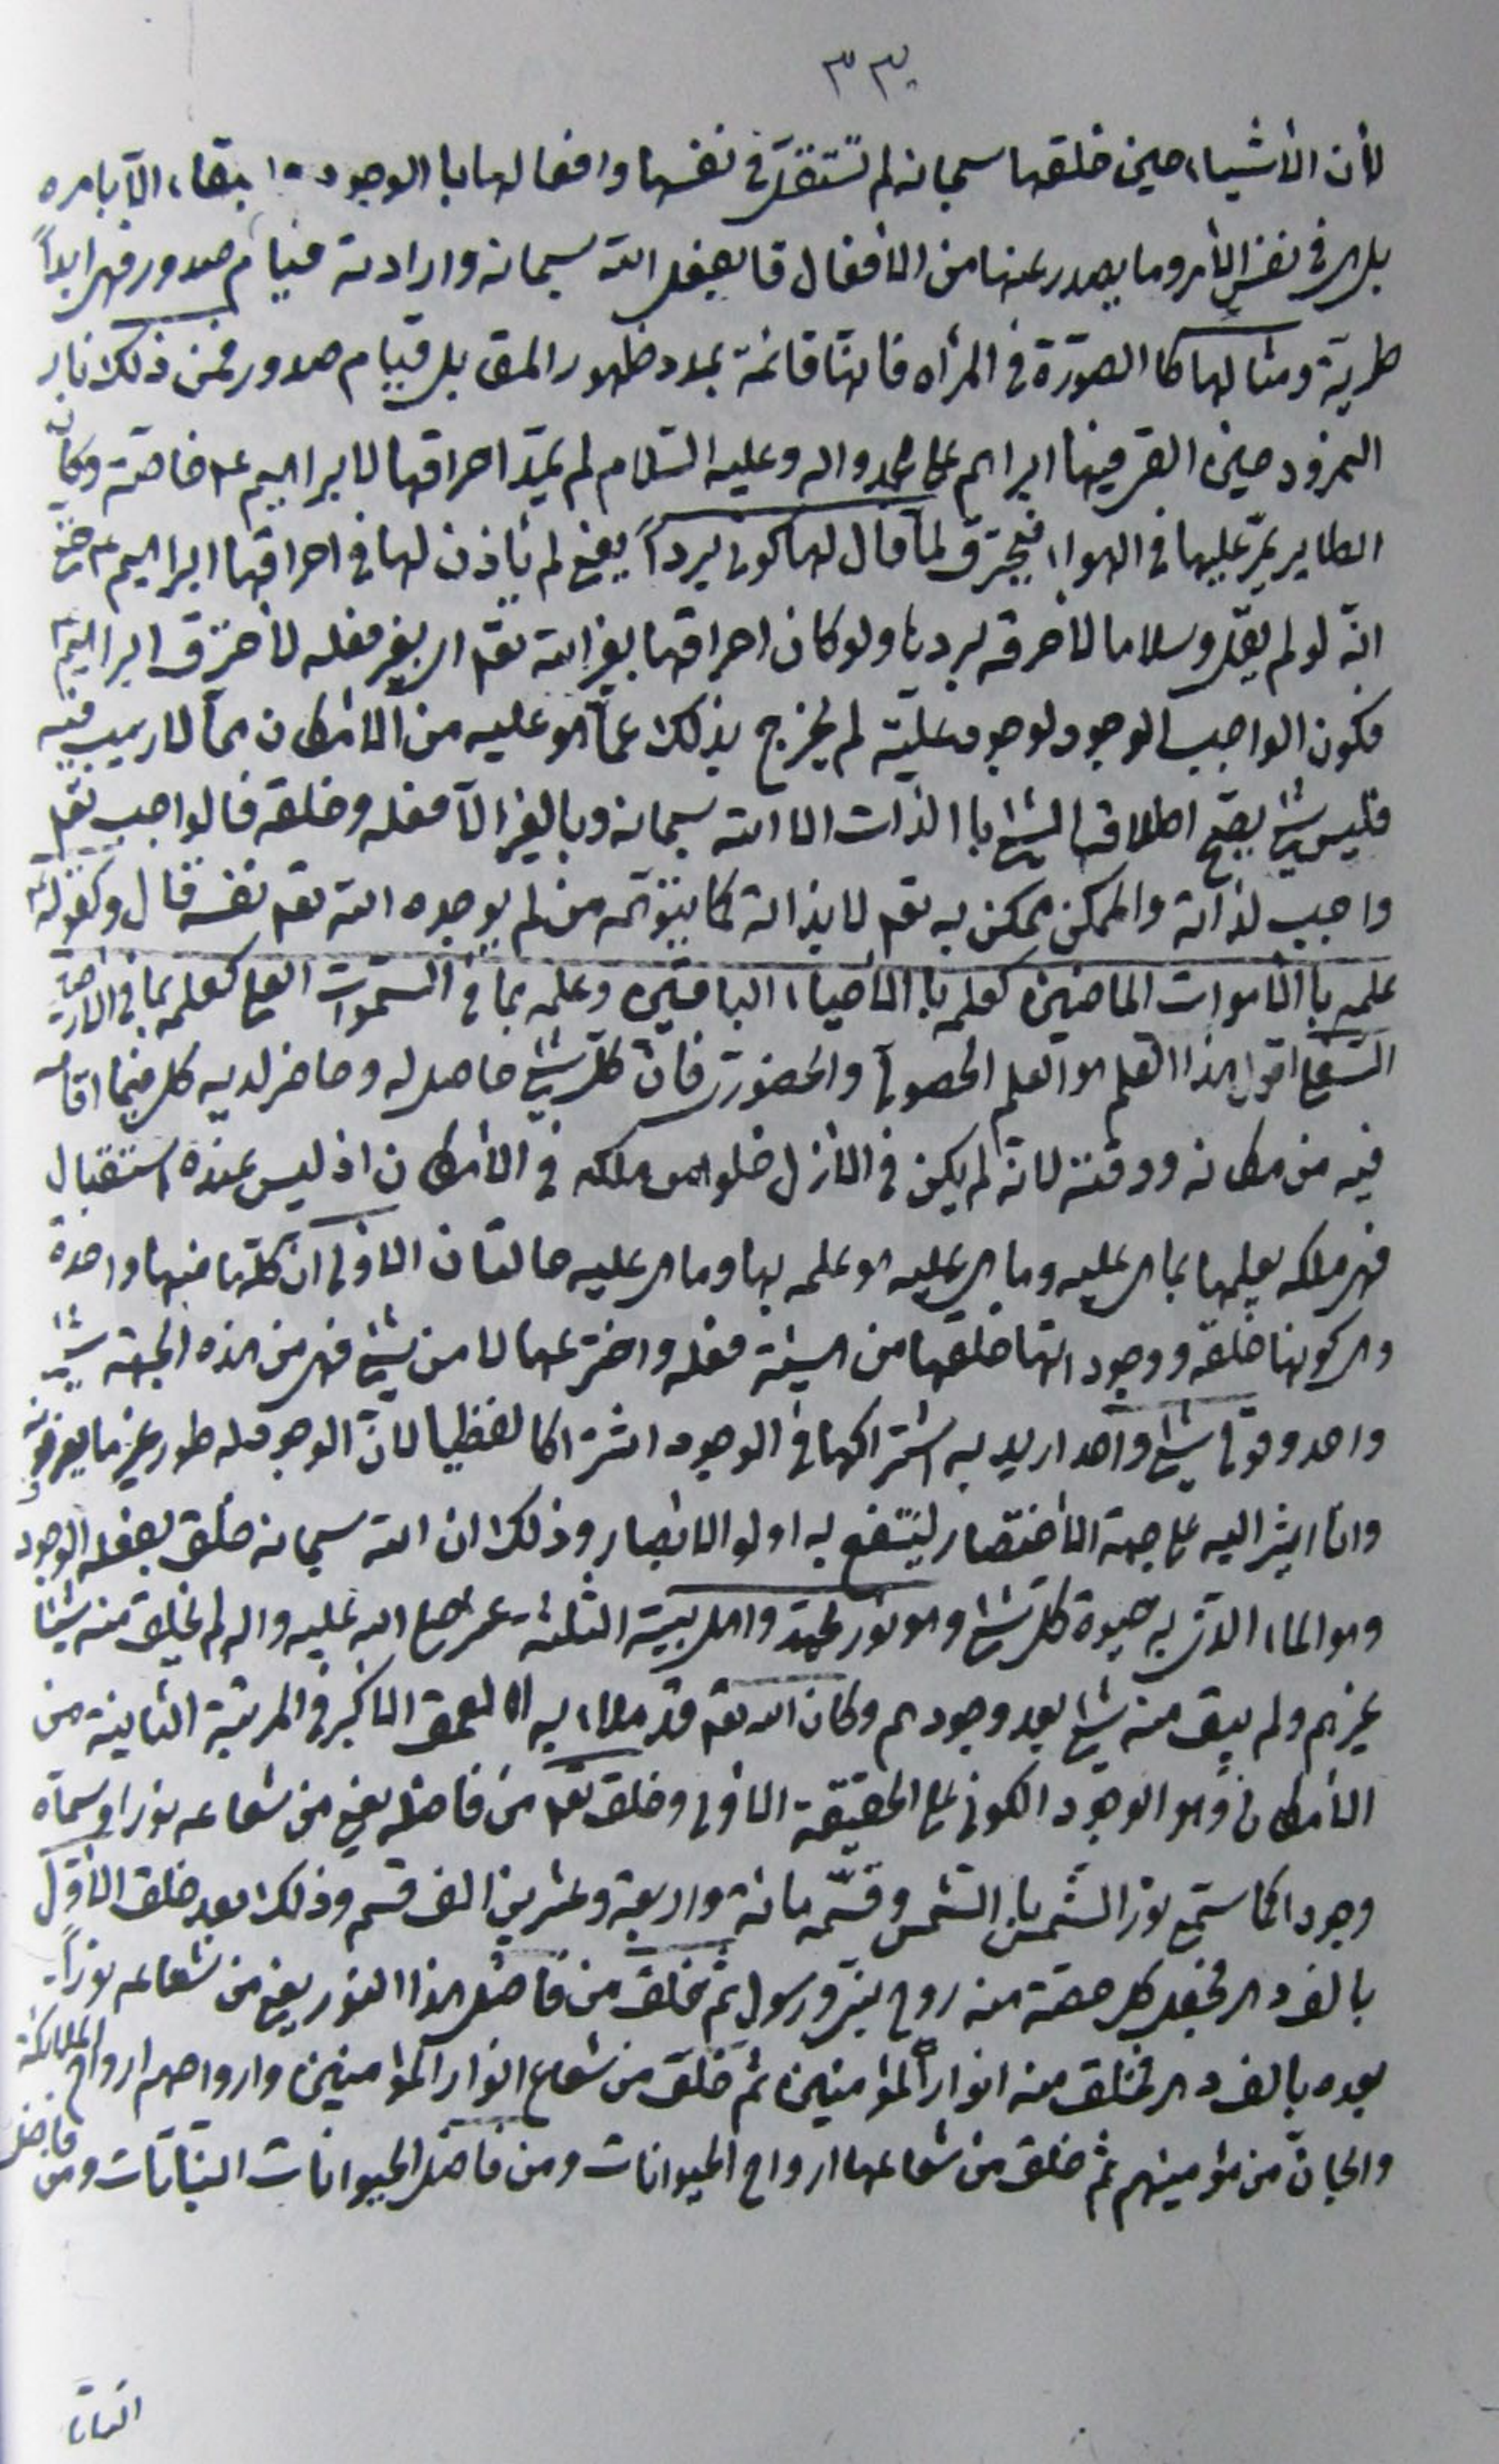 ٣٣٠
لأن الأشياء حين خلقها سبحانه لم تستقل في نفسها وافعالها با الوجود بقاء الّا بامره
بل هي في نفس الأمر وما يصدر عنها من الأفعال قا بفعل الله سبحانه وارادته قيام صدور فهي ابداً
طرية ومثالها كا الصورة في المرأه فانها قائمة بمدد ظهور المق بل قيام صدور فمن ذلك نار
النمرود حين القي فيها ابراهيم على محمد واله وعليه السّلام لم احراقها لابراهيم ع خاصة وكان
الطاير يمرّ عليها في الهواء فيحترق لمّا قال لها كوني برداً يعني لم يأذن لها في احراقها ابراهيم ع حتى
انّه لو لم يقل وسلاما لأحرقه بردها ولو كان احراقها بغير الله تعه اي بغير فعله لأحترق ابراهيم ع
فكون الواجب الوجود لوجود علّته لم يخرج بذلك عمّا هو عليه من الأمكان ممّا لا ريب فيه
فليس شئ يصّح اطلاق الشئ با الذات الا الله سبحانه وبا لغير الّا فعله وخلقه فا لواجب تعه
واجب لذاته والممكن ممكن به تعه لا بذاته كما يتوّهمه من لم يوجده الله تعه نفسه قال وكقوله ع
علمه با الأموات الماضين كعلمه با الأحياء الباقين وعلمه بما في السّموات العلى كعلمه بما في الأرضين
السّفلى اقول هذا العلم هو العلم الحصولي والحضوري فانّ كلّ شئ حاصل له وحاضر لديه كل فيما اقامه
فيه من مكانه ووقته لانه لم يكن في الأزل خلوا من ملكه في الأمكان اذ ليس عنده استقبال
فهي ملكه يعلمها بما هي عليه وما هي عليه هو علمه بها وما هي عليه حالتان الاولى انّ كلّها منها واحدة
وهي كونها خلقه ووجود انها خلقها من هيئة فعله واخترعها لا من شئ فهي من هذه الجهة شئ
واحد وقولي شئ واحد اريد به اشتراكها في الوجود اشتراكا لفظيا لانّ الوجود له طور غير ما يعرفونه
وانا اشير اليه على جهة الأختصار لينتفع به اولو الابصار وذلك ان الله سبحانه خلق بفعله الوجود
وهو الماء الذي به حيوة كلّ شئ وهو نور محمد واهل بيته الثلثة عشر صلى الله عليه واله لم يخلق منه شيئا
غيرهم ولم يبق منه شئ بعد وجودهم وكان الله تعه قد ملاء به العمق الأكبر في المرتبة الثانية من
الأمكان وهو الوجود الكوني على الحقيقة الاولى وخلق تعه من فاضله يعني من شعاعه نورا وسماه
وجودا كما سمّي نور الشمس با الشمس وقسّمه مائة واربعة وعشرين الف قسم وذلك بعد خلق الأوّل
بالف دهر فجعل كل حصّة منه روح نبيّ ورسول ثمّ خلق من فاضل هذا النور يعني من شعاعه نوراً
بعده بالف دهر فخلق منه انوار المؤمنين ثم خلق من شعاع انوار المؤمنين وارواحهم ارواح الملائكة
والجانّ من مؤمنيهم ثم خلق من شعاعها ارواح الحيوانات ومن فاضل الحيوانات النباتات ومن فاضل
النباتا